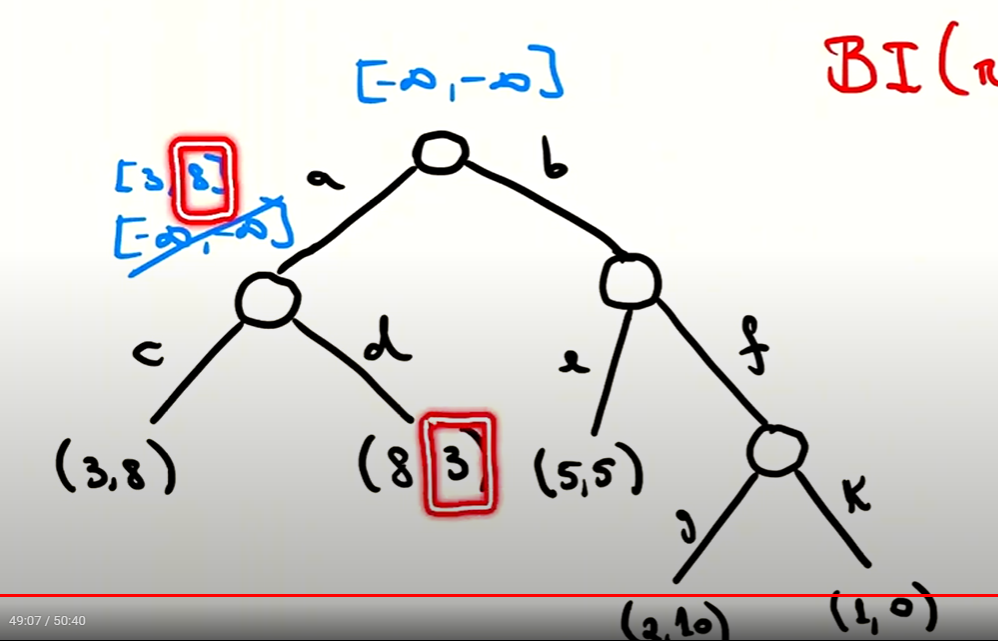 BI(
[-∞,-∞]
a
b
[3,8]
[-∞,-∞]
c
d
e
f
(3,8)
(8 3)
(5,5)
g
K
(2,10)
(1,0)
49:07 / 50:40